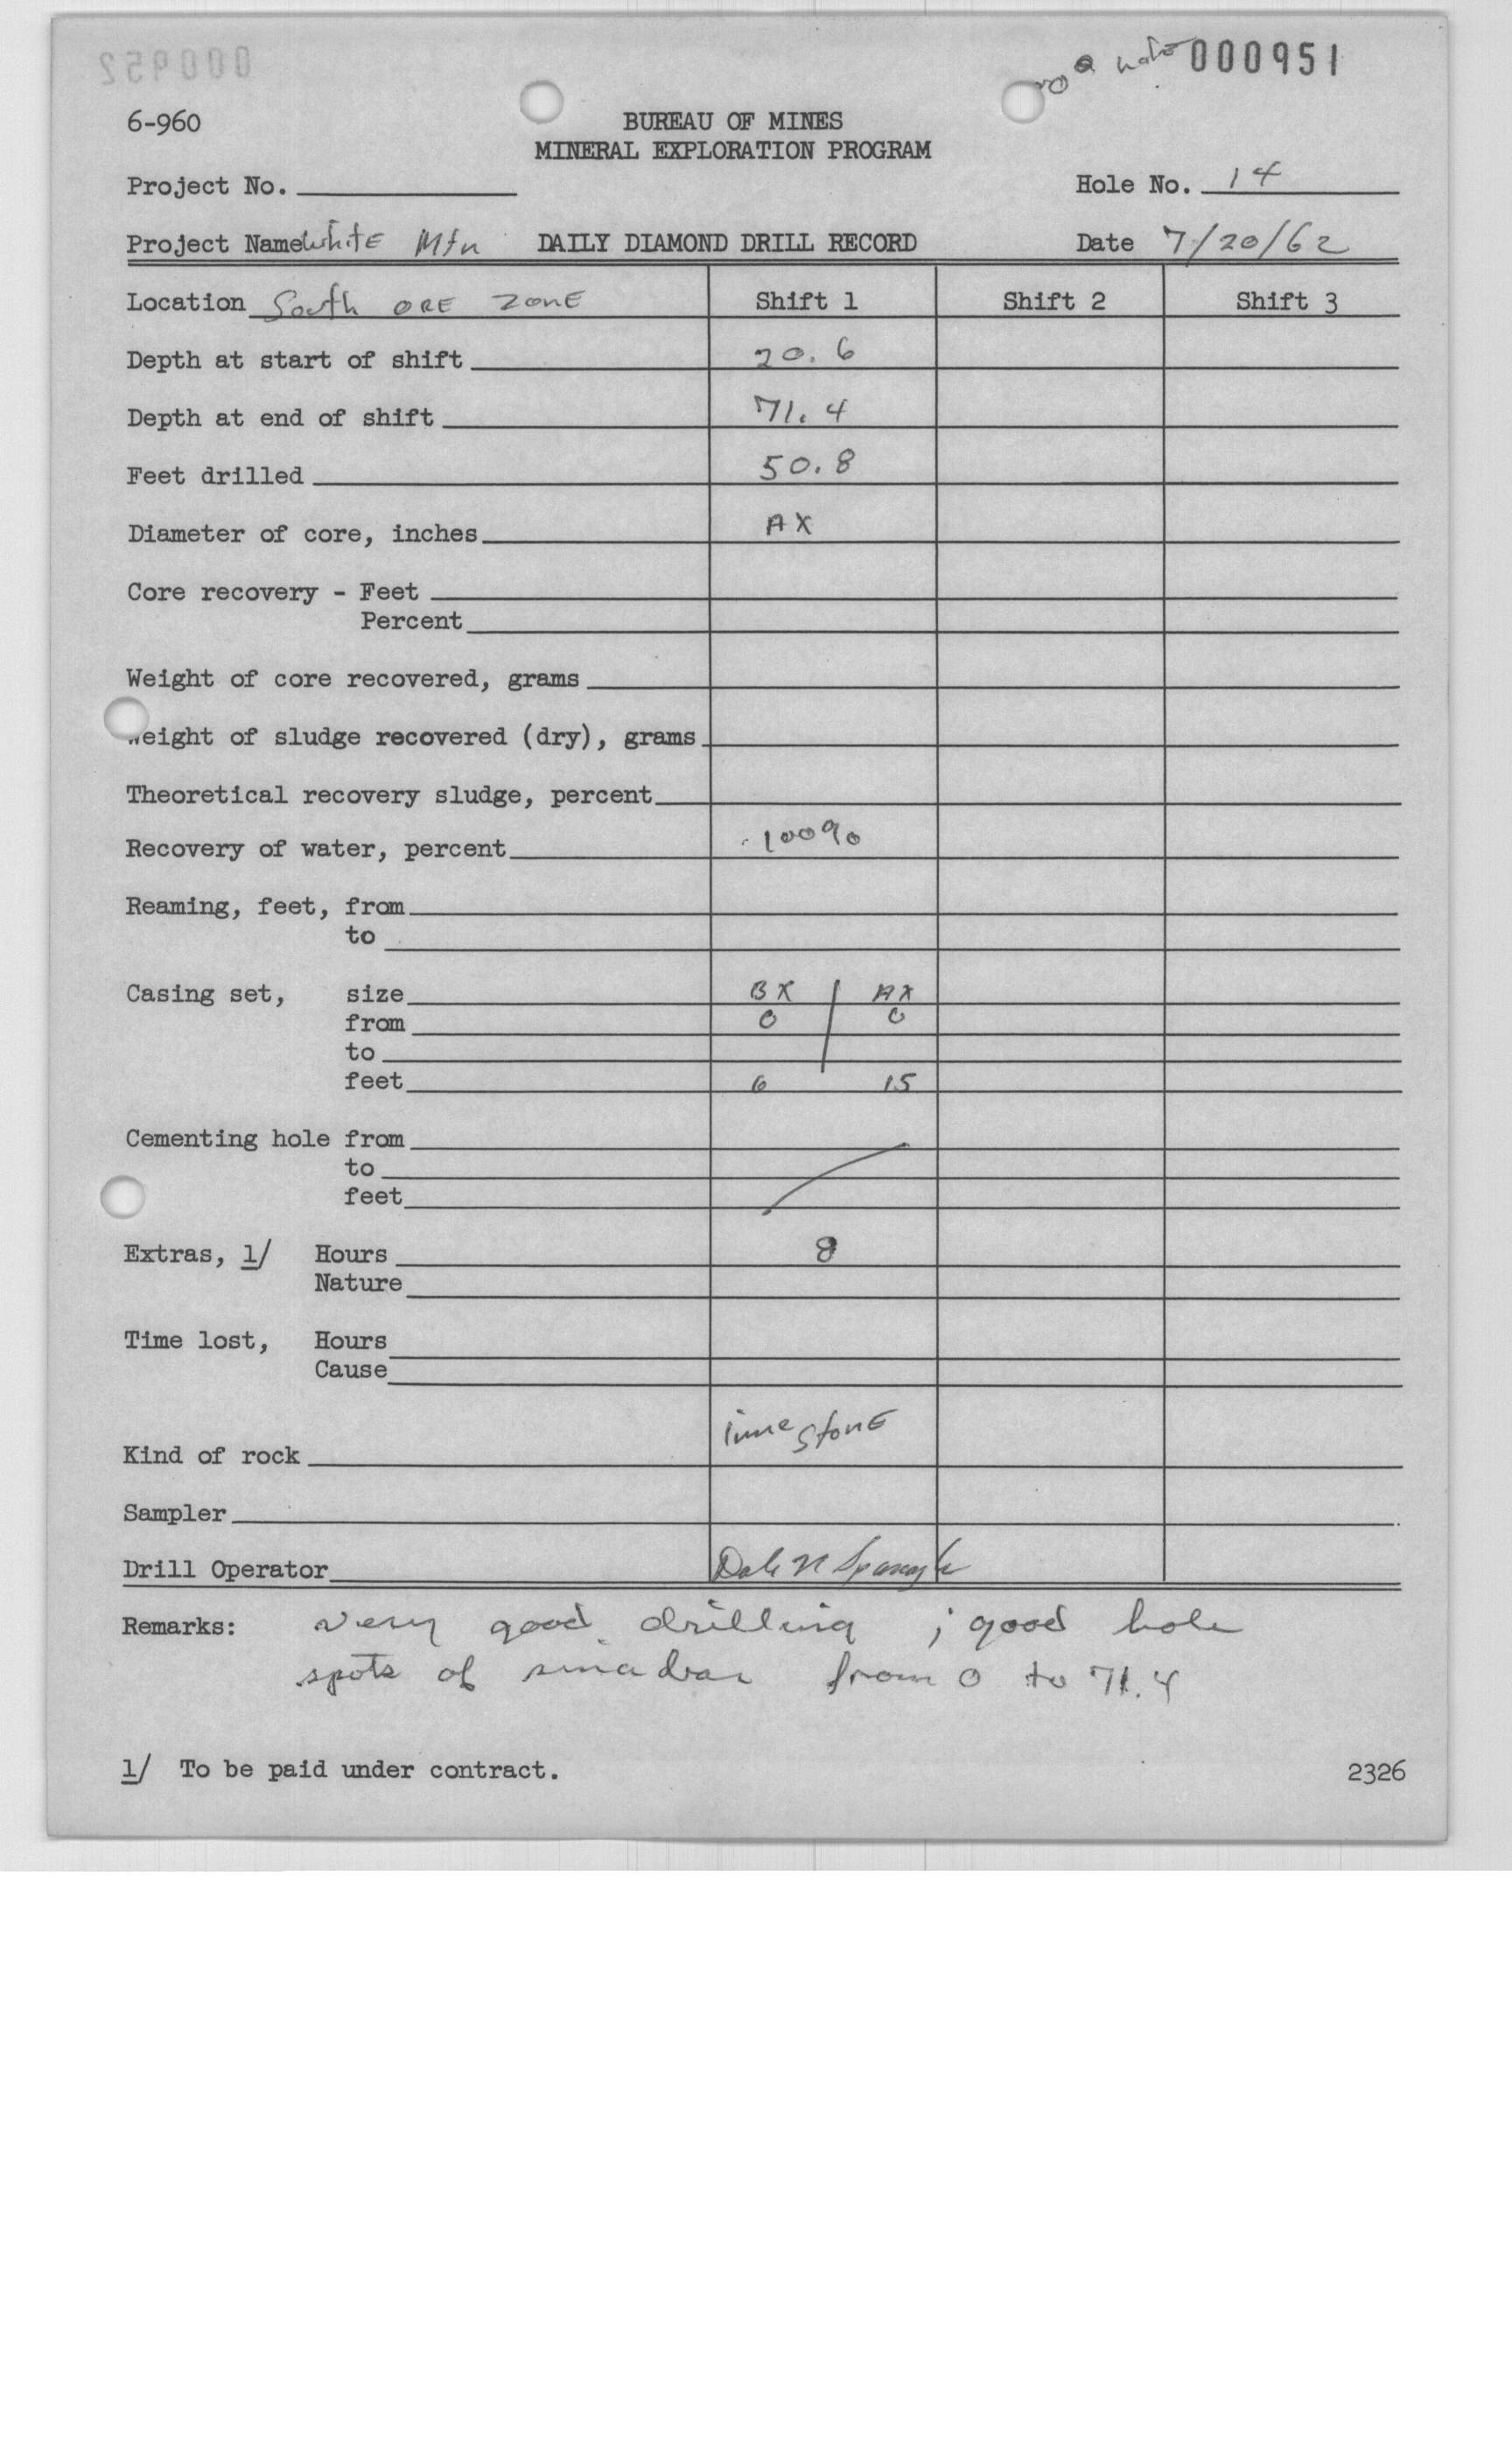 000952 000951
6-960 BUREAU OF MINES
MINERAL EXPLORATION PROGRAM
Project No. Hole No. 14
Project Name WhitE Mtn DAILY DIAMOND DRILL RECORD Date 7/20/62
Location South ORE ZonE Shift 1 Shift 2 Shift 3
Depth at start of shift 20.6
Depth at end of shift 71.4
Feet drilled 50.8
Diameter of core, inches AX
Core recovery - Feet
Percent
Weight of core recovered, grams
Weight of sludge recovered (dry), grams
Theoretical recovery sludge, percent
Recovery of water, percent 100%
Reaming, feet, from
to
Casing set, size BX / AX
from 0 0
to
feet 6 15
Cementing hole from
to
feet
Extras, 1/ Hours 8
Nature
Time lost, Hours
Cause
Kind of rock limestonE
Sampler
Drill Operator Dale N
Remarks: very good drilling ; good hole
spots of sinabar from 0 to 71.4
1/ To be paid under contract. 2326